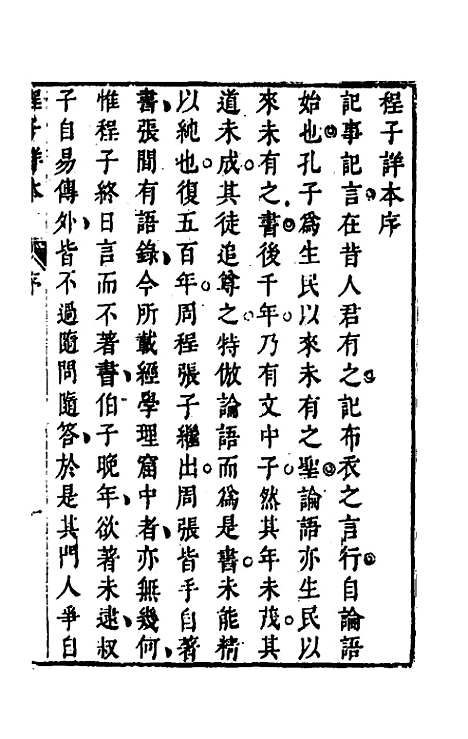 程子詳本序
記事記言在昔人君有之記布衣之言行自論語
始也孔子為生民以來未有之聖論語亦生民以
來未有之書後千年乃有文中子然其年未茂其
道未成其徒追尊之特倣論語而為是書未能精
以純也復五百年周程張子繼出周張皆手自著
書張間有語錄今所載經學理窟中者亦無幾何
惟程子終日言而不著書伯子晚年欲著未逮叔
子自易傳外皆不過隨問隨答於是其門人爭自
程子詳本 序 一